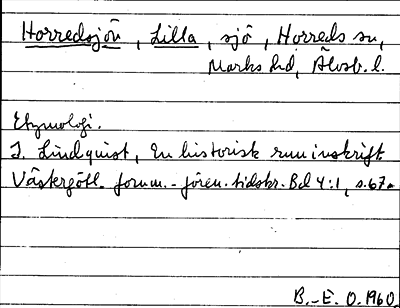 Horredsjön, Lilla, sjö, Horreds sn,
Marks hd, Älvsb. l.
Etymologi.
I. Lindquist, En historisk runinskrift
Västergötl. fornm.-fören. tidskr. Bd 4:1, s. 67.
B.-E. O. 1960.